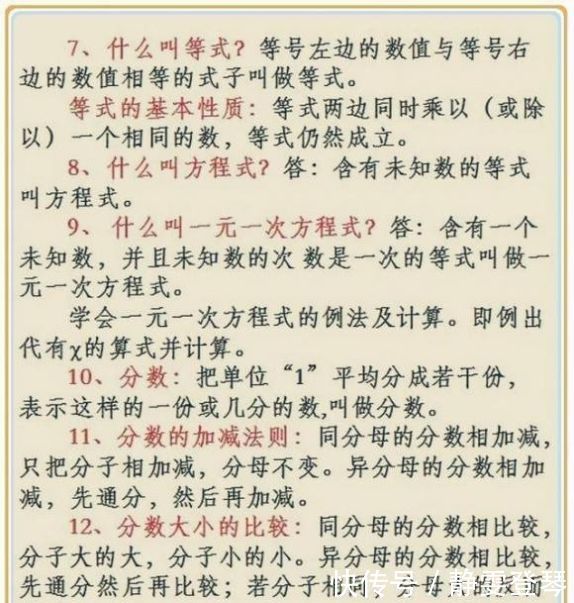 7、什么叫等式？等号左边的数值与等号右
边的数值相等的式子叫做等式。
等式的基本性质：等式两边同时乘以（或除
以）一个相同的数，等式仍然成立。
8、什么叫方程式？答：含有未知数的等式
叫方程式。
9、什么叫一元一次方程式？答：含有一个
未知数，并且未知数的次 数是一次的等式叫做一
元一次方程式。
学会一元一次方程式的例法及计算。即例出
代有χ的算式并计算。
10、分数：把单位“1”平均分成若干份，
表示这样的一份或几分的数,叫做分数。
11、分数的加减法则：同分母的分数相加减，
只把分子相加减，分母不变。异分母的分数相加
减，先通分，然后再加减。
12、分数大小的比较：同分母的分数相比较，
分子大的大，分子小的小。异分母的分数相比较，
先通分然后再比较；若分子相同，
快传号/静雯登琴